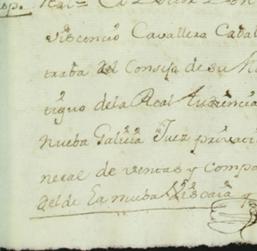 visconcio Cavallero Caval
traba del Consejo de su M
tiguo dela Real Audiencia
nueba Galicia Juez privati
neral de ventas y compo
del de la nueba Viscaia y